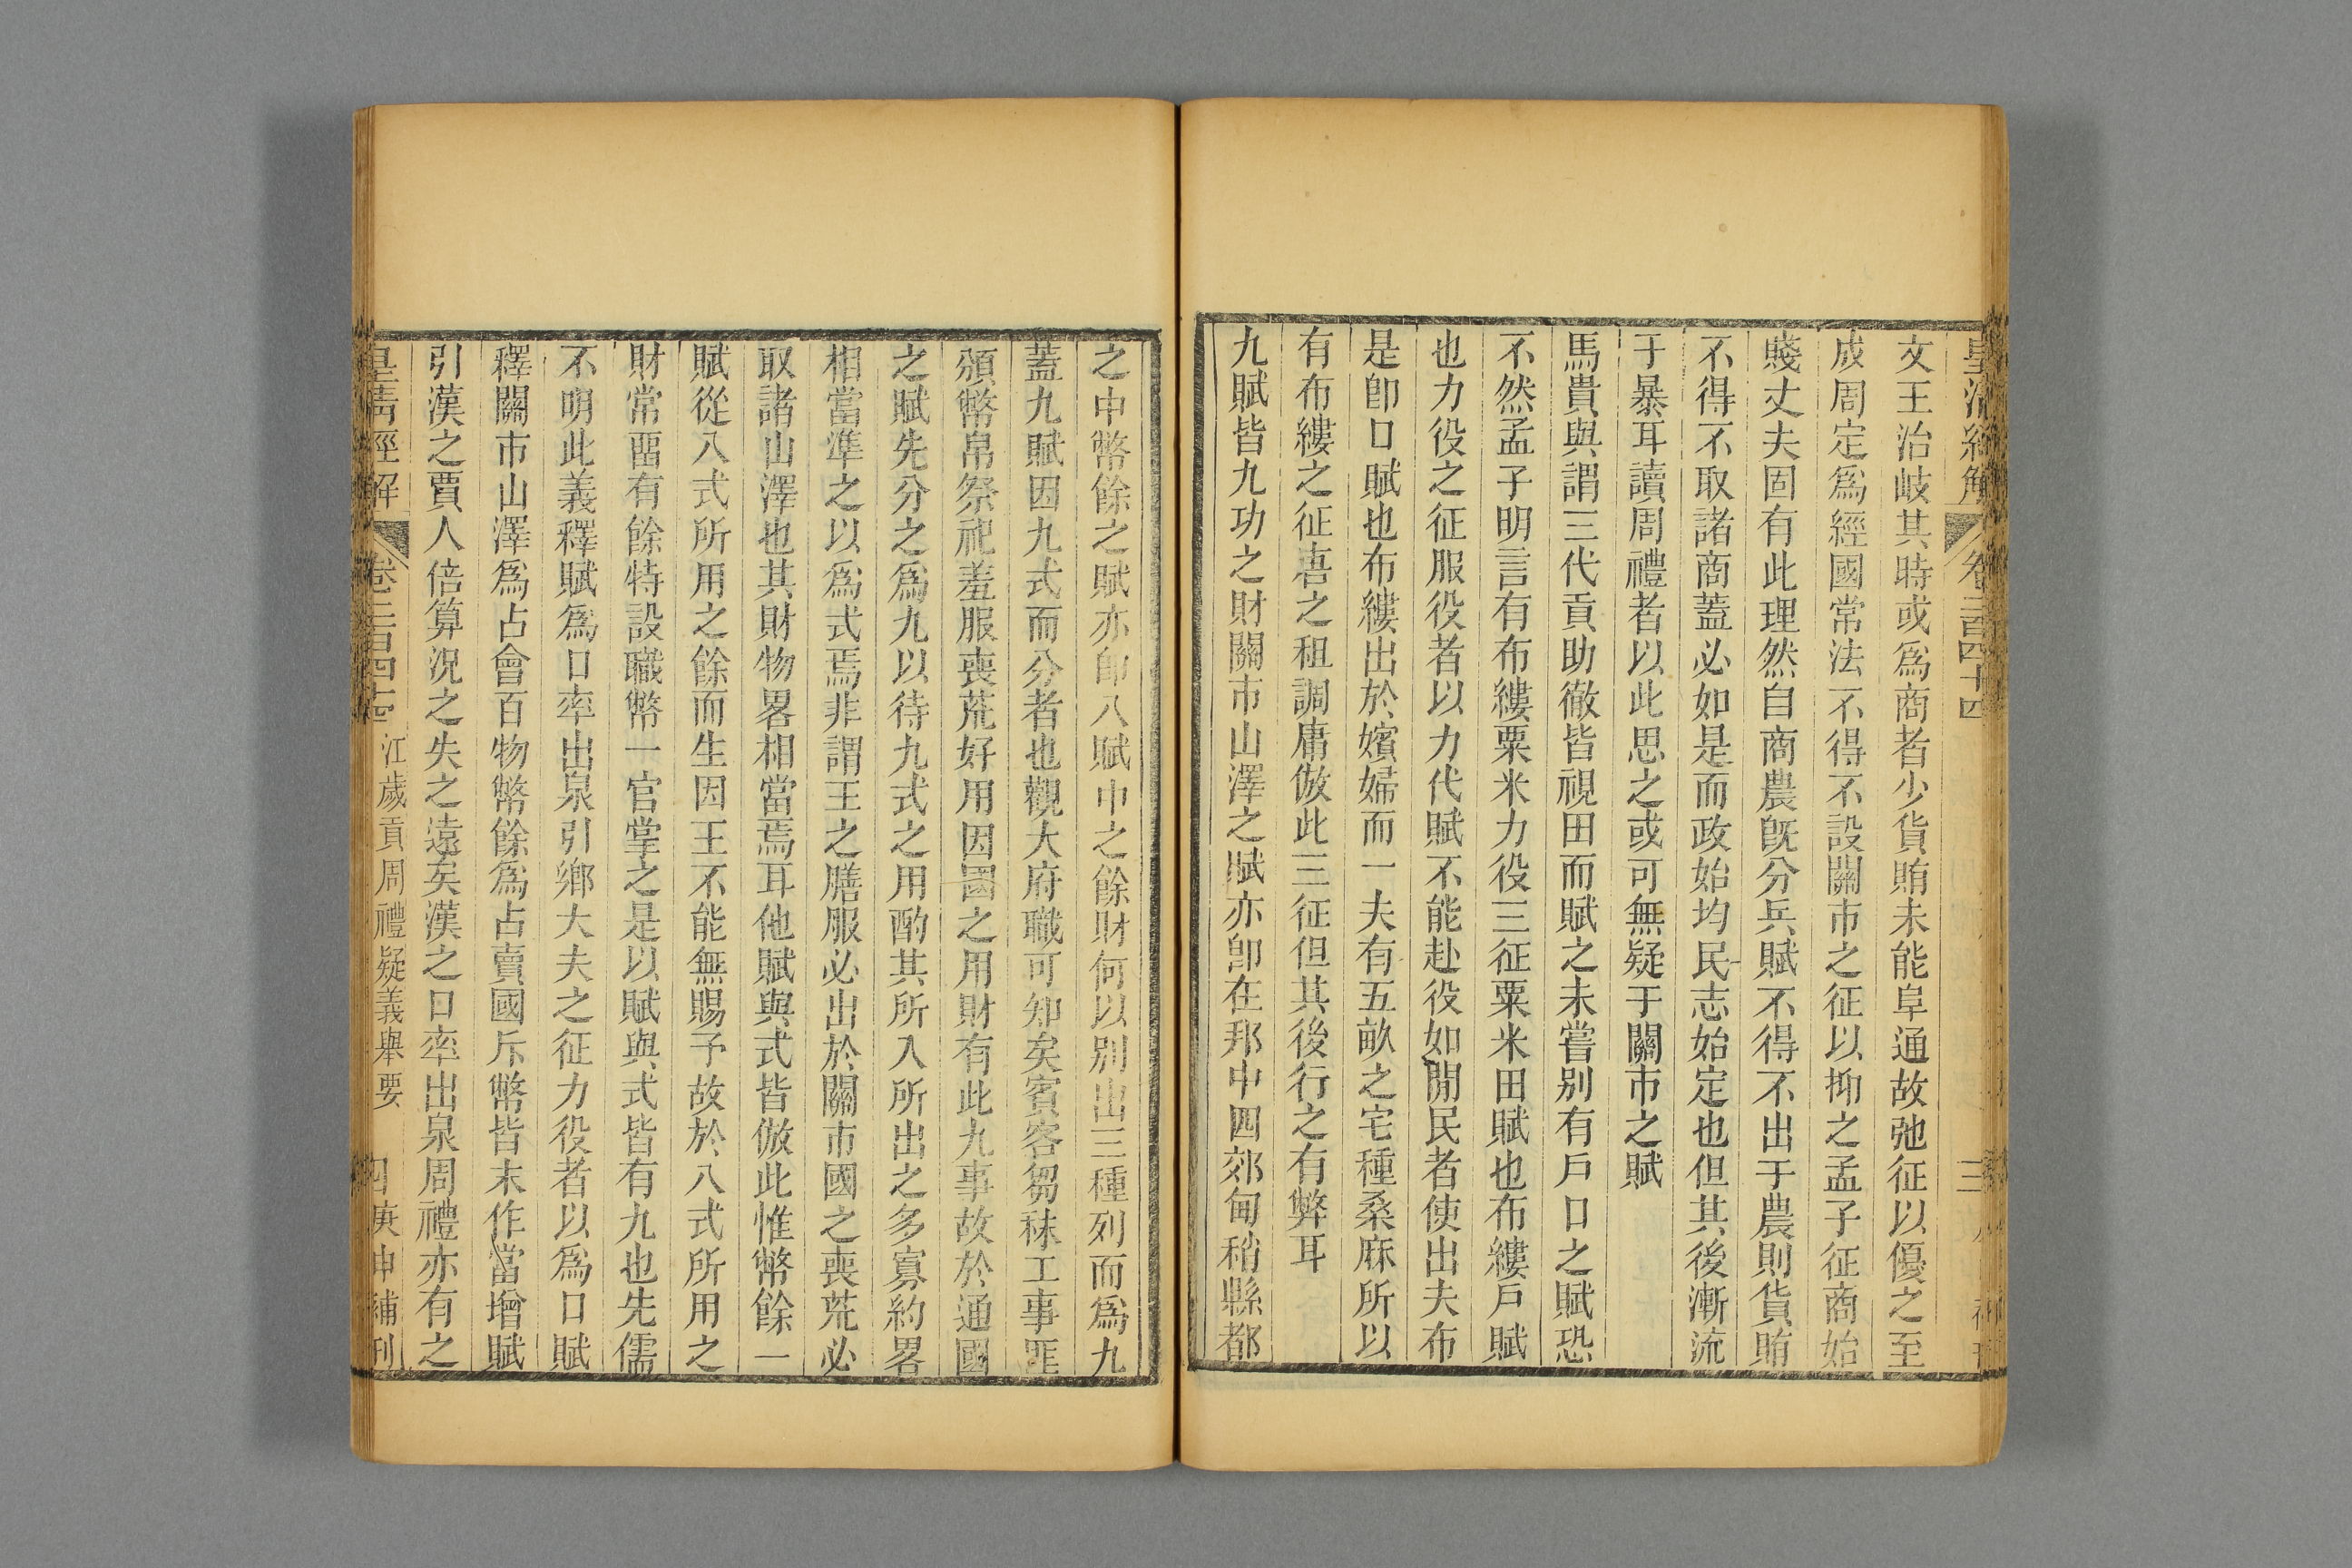 文王治岐其時或爲商者少貨賄未能阜通故弛征以優之至
成周定爲經國常法不得不設關市之征以抑之孟子征商始
賤丈夫固有此理然自商農旣分兵賦不得不出于農則貨賄
不得不取諸商蓋必如是而政始均民志始定也但其後漸流
于暴耳讀周禮者以此思之或可無疑于關市之賦
馬貴與謂三代貢助徹皆視田而賦之未嘗别有戶口之賦恐
不然孟子明言有布縷粟米力役三征粟米田賦也布縷戶賦
也力役之征服役者以力代賦不能赴役如閒民者使出夫布
是卽口賦也布縷出於嬪婦而一夫有五畝之宅種桑麻所以
有布縷之征唐之租調庸倣此三征但其後行之有弊耳
九賦皆九功之財關市山澤之賦亦卽在邦中四郊甸稍縣都
之中幣餘之賦亦卽八賦中之餘財何以别出三種列而爲九
蓋九賦因九式而分者也觀大府職可知矣賓客芻秣工事匪
頒幣帛祭祀羞服喪荒好用因國之用財有此九事故於通國
之賦先分之爲九以待九式之用酌其所入所出之多寡約畧
相當準之以爲式焉非謂王之膳服必出於關市國之喪荒必
取諸山澤也其財物畧相當焉耳他賦與式皆倣此惟幣餘一
賦從八式所用之餘而生因王不能無賜予故於八式所用之
財常畱有餘特設職幣一官掌之是以賦與式皆有九也先儒
不明此義釋賦爲口率出泉引鄉大夫之征力役者以爲口賦
釋關市山澤爲占會百物幣餘爲占賣國斥幣皆末作當增賦
引漢之賈人倍算況之失之遠矣漢之口率出泉周禮亦有之
皇清經解 卷二百四十四 江歲貢周禮疑義舉要 四 庚申補刊